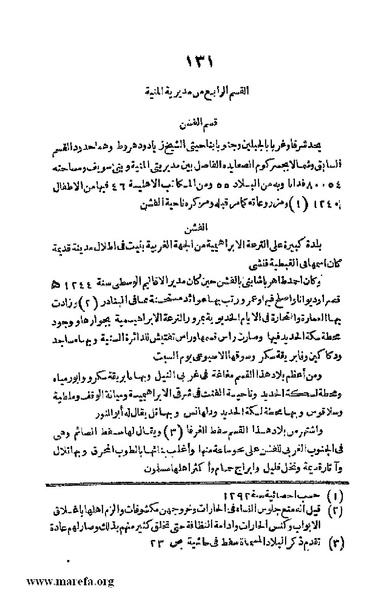 ١٣١
القسم الرابع من مديرية المنية
قسم الفشن
يحد شرقا وغربا بالجبلين وجنوبا بناحيتي الشيخ زياد ودهروط وهما حدود القسم
السابق وشمالا بجسر كوم الصعايده الفاصل بين مديريتي المنية وبني سويف ومساحته
٨٠٠٥٤ فدانا وبه من البلاد ٥٥ ومن المكاتب الاهلية ٤٦ فيها من الاطفال
١٢٤٠ (١) ومزروعاته كما مر قبله ومركزه ناحية الفشن
الفشن
بلدة كبيرة على الترعة الابراهيمية من الجهة الغربية بنيت في اطلال مدينة قديمة
كان اسمها في القبطية فنشى
وكان احمد طاهر باشا بنى بالفشن حين كان مدير الاقاليم الوسطى سنة ١٢٤٤ ه
قصرا وديوانا واصلح فيها وعمر ورتب بها عوائد مستحسنة بباقى البنادر (٢) زادت
بها العمارة والتجارة في الايام الخديوية بمرور الترعة الابراهيمية بجوارها ووجود
محطة سكة الحديد فيها وصارت راس قسم بها وراس تفتيش للدائرة السنية وبها مساجد
ودكاكين وفابريقة سكر وسوقها الاسبوعي يوم السبت
ومن أعظم بلاد هذا القسم مغاغة في غربي النيل وبها فابريقة سكر ووابور مياه
ومحطة لسكة الحديد وناحية الفنت في شرق الابراهيمية وميانة الوقف وملطية
وسلاقوس وبها محطة لسكة الحديد ودلهانس وبها تل يقال له أبو النور
واشتهر من بلاد هذا القسم سفط العرفا (٣) ويقال لها سفط انصائم وهي
في الجنوب الغربي للفشن على نحو ساعة منها وأغلب بنائها بالطوب المحرق وبها تلال
وآثار قديمة ونخل قليل وابراج حمام وأكثر اهلها مسلمون
(١) حسب احصائية سنة ١٢٩٢
(٢) قيل انه منع جلوس النساء في الحارات وخروجهن مكشوفات والزم اهلها باغلاق
الابواب وكنس الحارات وادامة النظافة حتى تخلق كثير منهم بذلك وصار لهم عادة
(٣) تقدم ذكر البلاد المسماة سفط في حاشية ص ٢٣
www.marefa.org